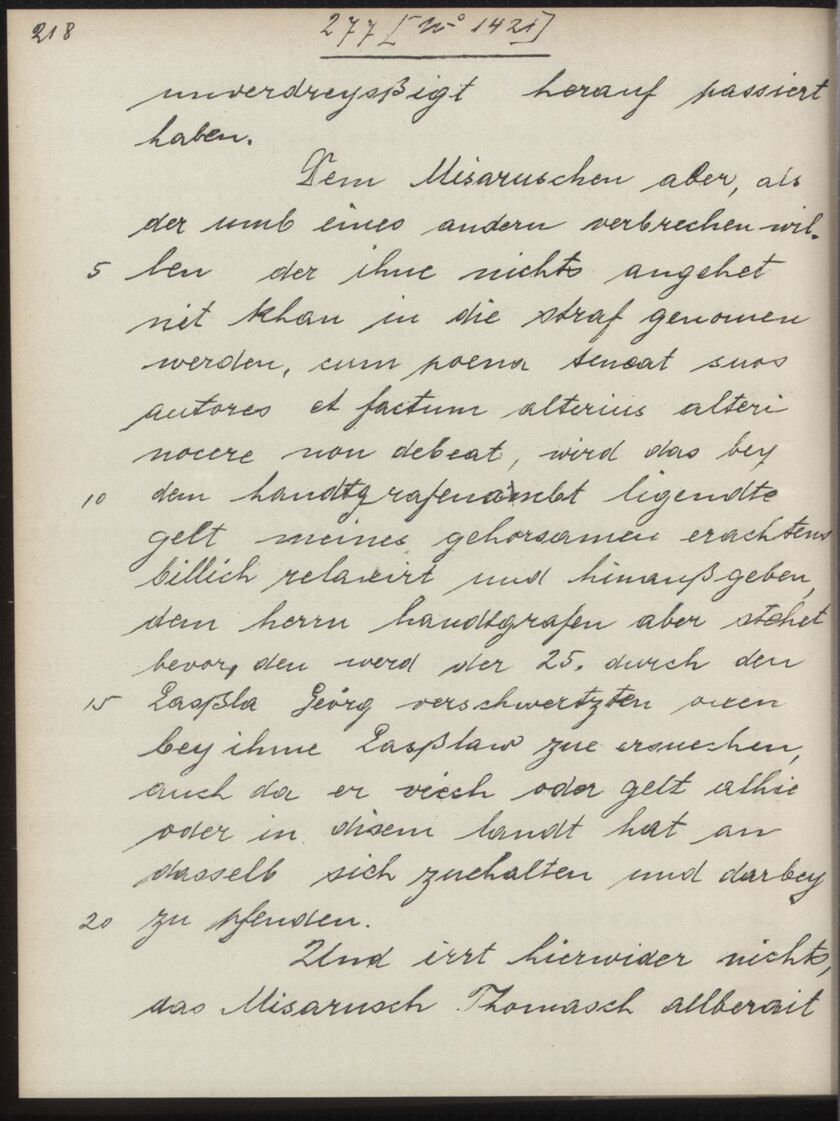 218
277 [N° 1421]
unverdreyßigt herauf passiert
haben.
Dem Misaruschen aber, als
der umb eines andern verbrechen wil-
5 len der ihne nichts angehet
nit khan in die straf genomen
werden, cum poena teneat suos
autores et factum alterius alteri
nocere non debeat, wird das bey
10 dem handtgrafenambt ligendte
gelt meines gehorsamen erachtens
billich relaxirt und hinaußgeben,
dem herrn handtgrafen aber stehet
bevor, den werd der 25. durch den
15 Laßla Geörg verschwertzten oxen
bey ihme Laßlaw zue ersuechen,
auch da er viech oder gelt alhie
oder in disem landt hat an
dasselb sich zuehalten und darbey
20 zu pfenden.
Und irrt hierwider nichts,
das Misarusch Thomasch allberait